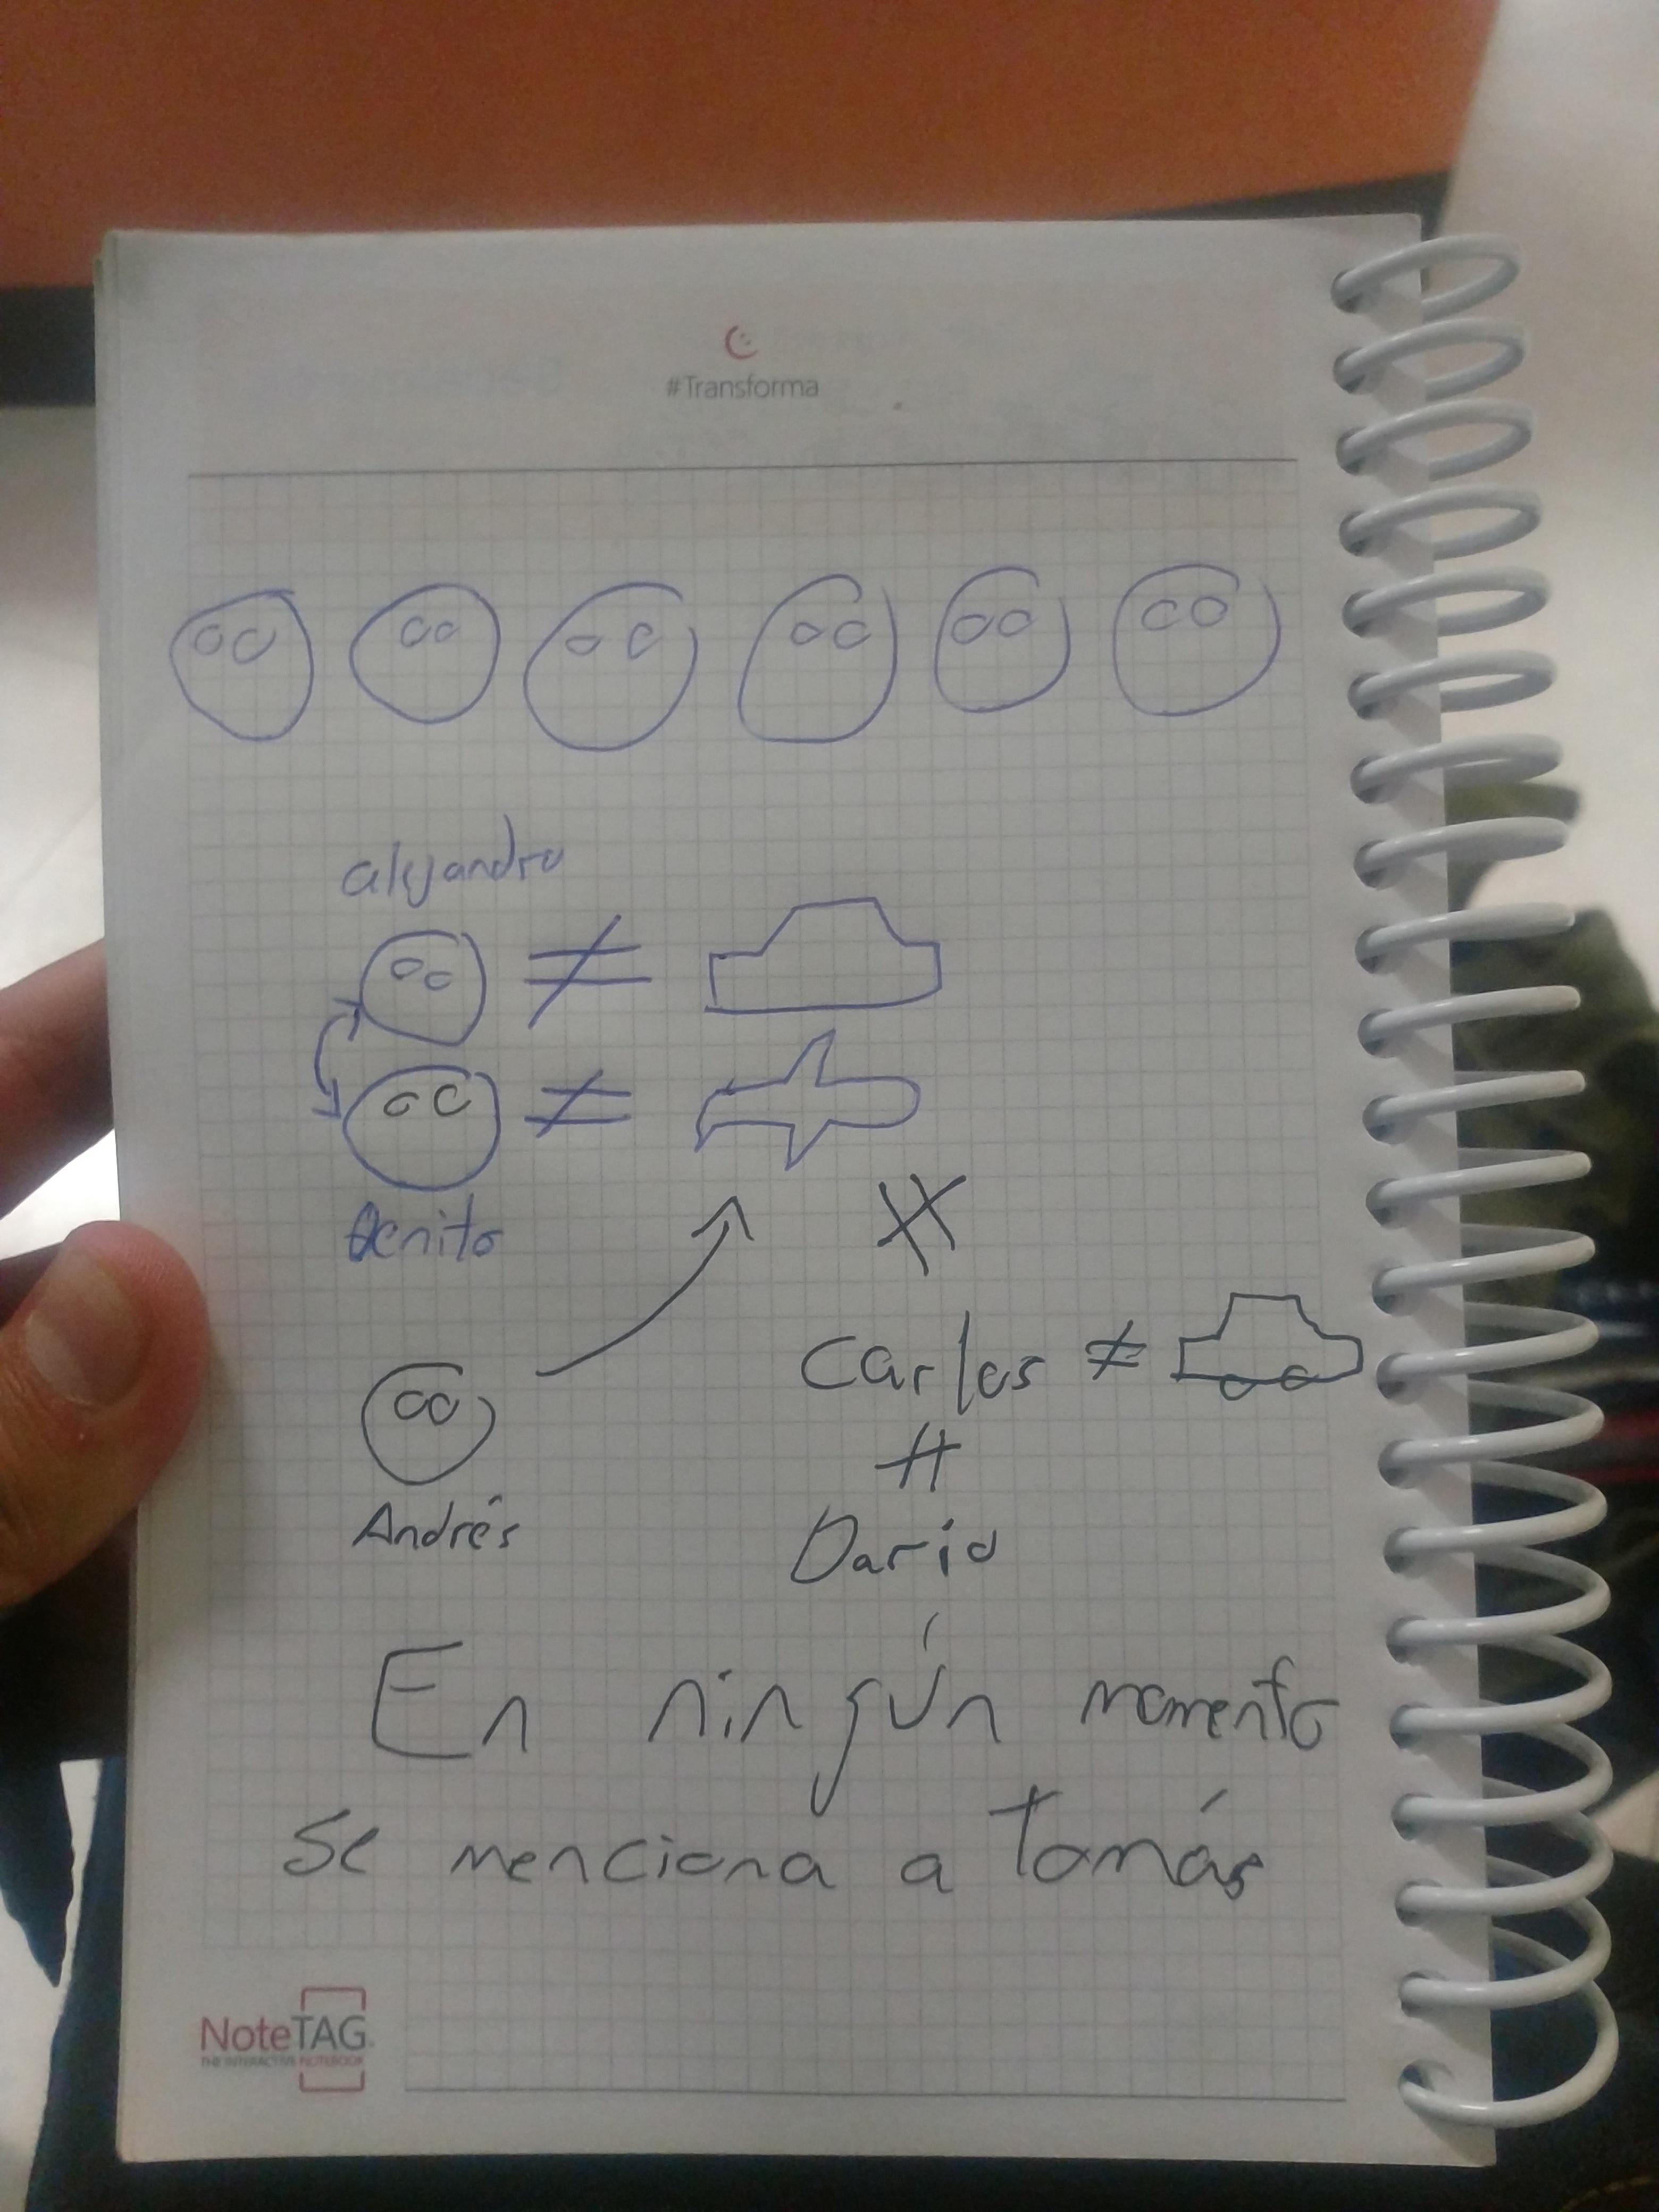 #Transforma
alejandro
≠
≠
Benito
Carlos ≠
Andrés
Darío
En ningún momento
se menciona a Tomás
NoteTAG
THE INTERACTIVE NOTEBOOK